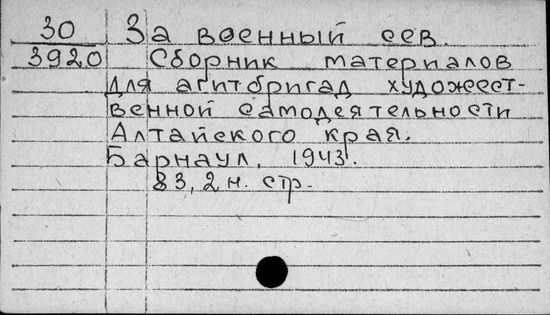 30 За военный сев.
3920 Сборник материалов
для агитбригад художест-
венной самодеятельности
Алтайского края.
Барнаул, 1943.
83, 2 н. стр.